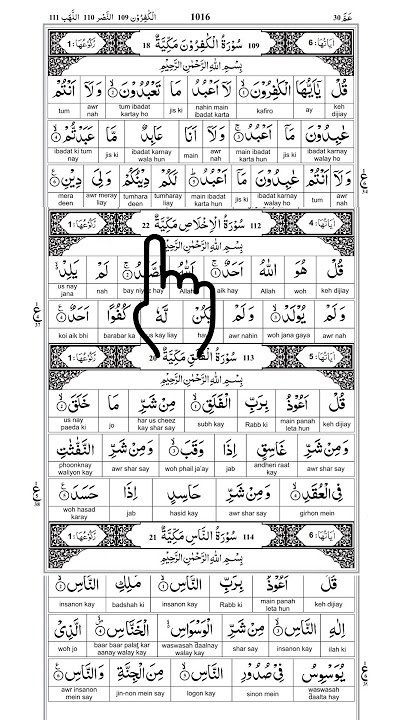 اَلْكٰفِرُوْن 109 اَلنَّصْر 110 اَللَّهَب 111 1016 عَمّ 30
رُكُوْعُهَا: 1 109 سُوْرَةُ الْكٰفِرُوْنَ مَكِّيَّةٌ 18 اٰيَاتُهَا: 6
بِسْمِ اللّٰهِ الرَّحْمٰنِ الرَّحِيْمِ
قُلْ يٰٓاَيُّهَا الْكٰفِرُوْنَ ۙ١ لَآ اَعْبُدُ مَا تَعْبُدُوْنَ ۙ٢ وَلَآ اَنْتُمْ
keh dijiay ay kafiro nahin main ibadat karta jis ki tum ibadat kartay ho awr nah tum
عٰبِدُوْنَ مَآ اَعْبُدُ ۚ٣ وَلَآ اَنَا عَابِدٌ مَّا عَبَدْتُّمْ ۙ٤
ibadat karnay walay ho jis ki main ibadat karta hun awr nah main ibadat karnay wala hun jis ki ibadat ki tum nay
وَلَآ اَنْتُمْ عٰبِدُوْنَ مَآ اَعْبُدُ ؕ٥ لَكُمْ دِيْنُكُمْ وَلِيَ دِيْنِ ٦
awr nah tum ibadat karnay walay ho jis ki main ibadat karta hun tumharay liay tumhara deen awr meray liay mera deen
رُكُوْعُهَا: 1 112 سُوْرَةُ الْاِخْلَاصِ مَكِّيَّةٌ 22 اٰيَاتُهَا: 4
بِسْمِ اللّٰهِ الرَّحْمٰنِ الرَّحِيْمِ
قُلْ هُوَ اللّٰهُ اَحَدٌ ۚ١ اَللّٰهُ الصَّمَدُ ۚ٢ لَمْ يَلِدْ
keh dijiay woh Allah aik hay Allah bay niyaz hay nah us nay jana
وَلَمْ يُوْلَدْ ۙ٣ وَلَمْ يَكُنْ لَّهٗ كُفُوًا اَحَدٌ ٤
awr nah woh jana gaya awr nahin hay us kay liay barabar ka koi aik bhi
رُكُوْعُهَا: 1 113 سُوْرَةُ الْفَلَقِ مَكِّيَّةٌ 20 اٰيَاتُهَا: 5
بِسْمِ اللّٰهِ الرَّحْمٰنِ الرَّحِيْمِ
قُلْ اَعُوْذُ بِرَبِّ الْفَلَقِ ۙ١ مِنْ شَرِّ مَا خَلَقَ ۙ٢
keh dijiay main panah leta hun Rabb ki subh kay har us cheez kay shar say jo us nay paeda ki
وَمِنْ شَرِّ غَاسِقٍ اِذَا وَقَبَ ۙ٣ وَمِنْ شَرِّ النَّفّٰثٰتِ
awr shar say andheri raat kay jab woh phail ja'ay awr shar say phoonknay waliyon kay
فِي الْعُقَدِ ۙ٤ وَمِنْ شَرِّ حَاسِدٍ اِذَا حَسَدَ ٥
girhon mein awr shar say hasid kay jab woh hasad karay
رُكُوْعُهَا: 1 114 سُوْرَةُ النَّاسِ مَكِّيَّةٌ 21 اٰيَاتُهَا: 6
بِسْمِ اللّٰهِ الرَّحْمٰنِ الرَّحِيْمِ
قُلْ اَعُوْذُ بِرَبِّ النَّاسِ ۙ١ مَلِكِ النَّاسِ ۙ٢
keh dijiay main panah leta hun Rabb ki insanon kay badshah ki insanon kay
اِلٰهِ النَّاسِ ۙ٣ مِنْ شَرِّ الْوَسْوَاسِ الْخَنَّاسِ ۙ٤ الَّذِيْ
ilah ki insanon kay shar say waswasah daalnay walay kay baar baar palaṭ kar aanay walay kay woh jo
يُوَسْوِسُ فِيْ صُدُوْرِ النَّاسِ ۙ٥ مِنَ الْجِنَّةِ وَالنَّاسِ ٦
waswasah daalta hay sinon mein logon kay jin-non mein say awr insanon mein say